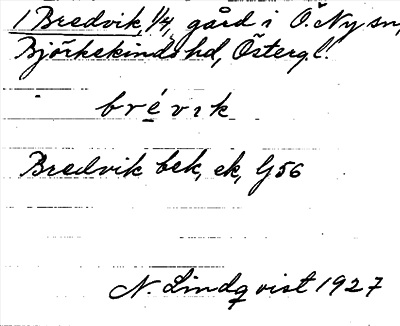 1 Bredvik, 1/4, gård i Ö. Ny sn,
Björkekinds hd, Östergl.
brévik
Bredvik bek, ek, G 56
N. Lindqvist 1927